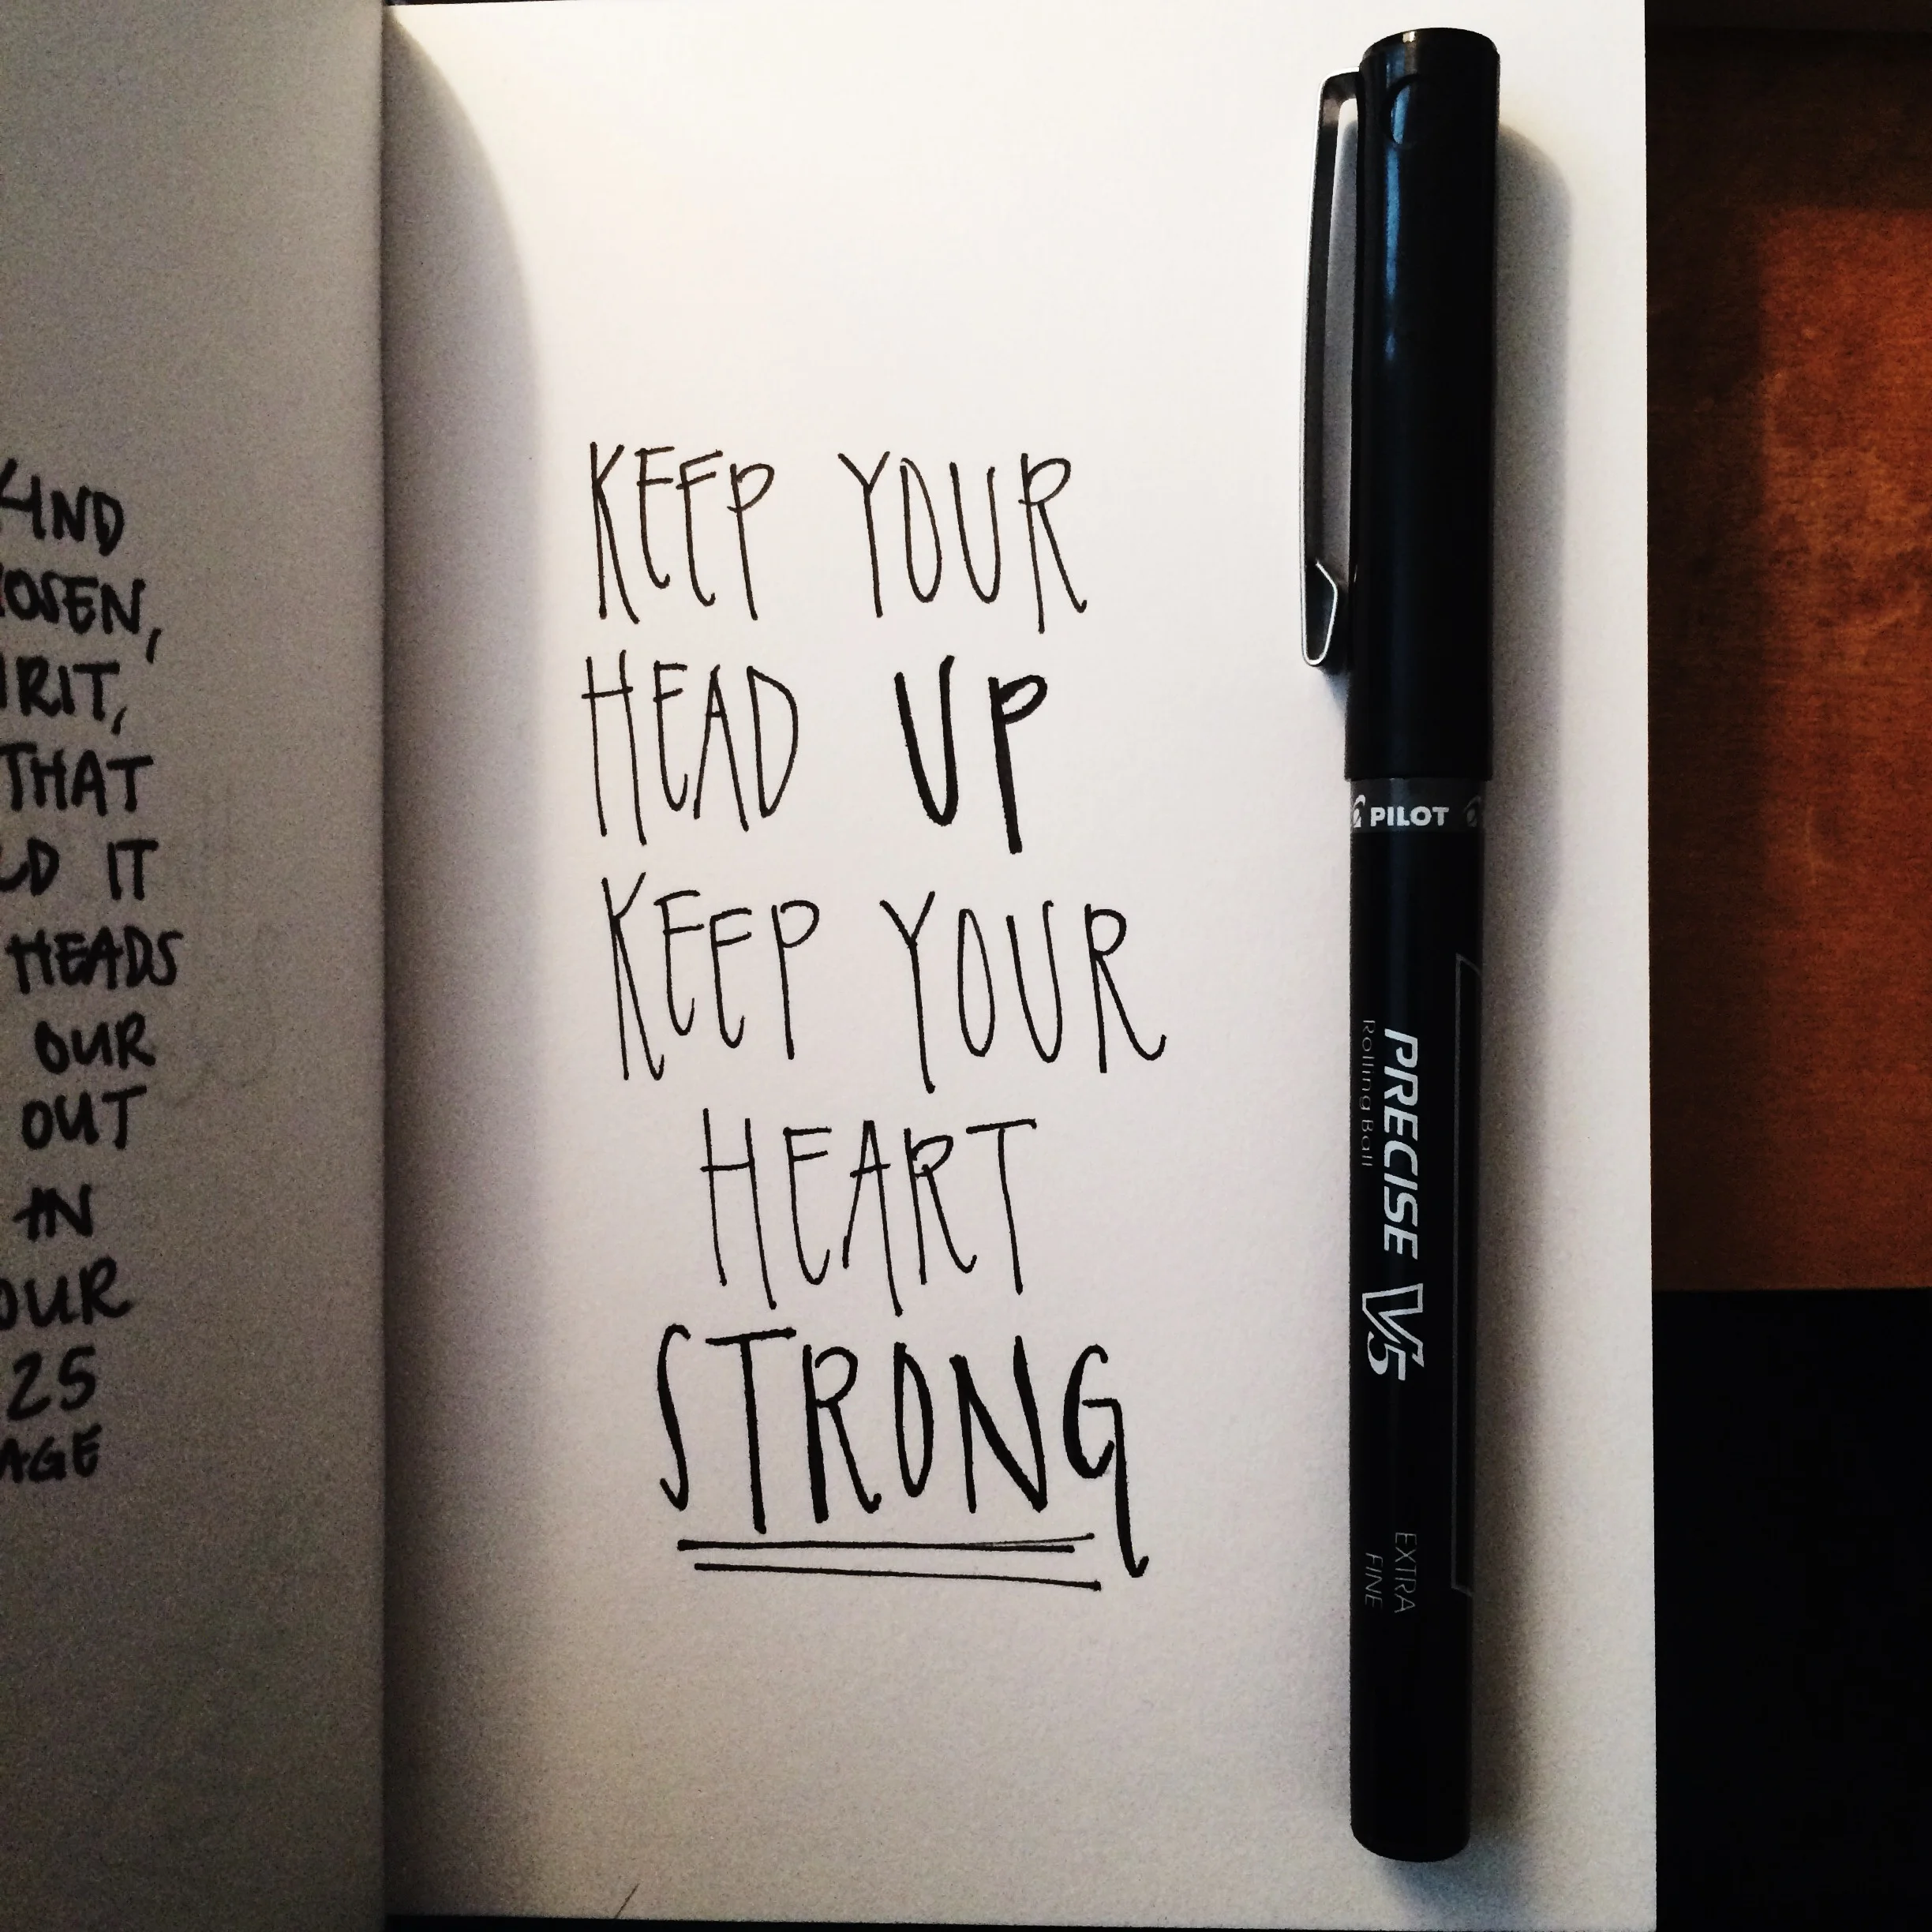 AND
THAT
IT
HEADS
OUR
OUT
IN
25
KEEP YOUR
HEAD UP
KEEP YOUR
HEART
STRONG
PILOT
PRECISE V5
Rolling Ball
EXTRA
FINE